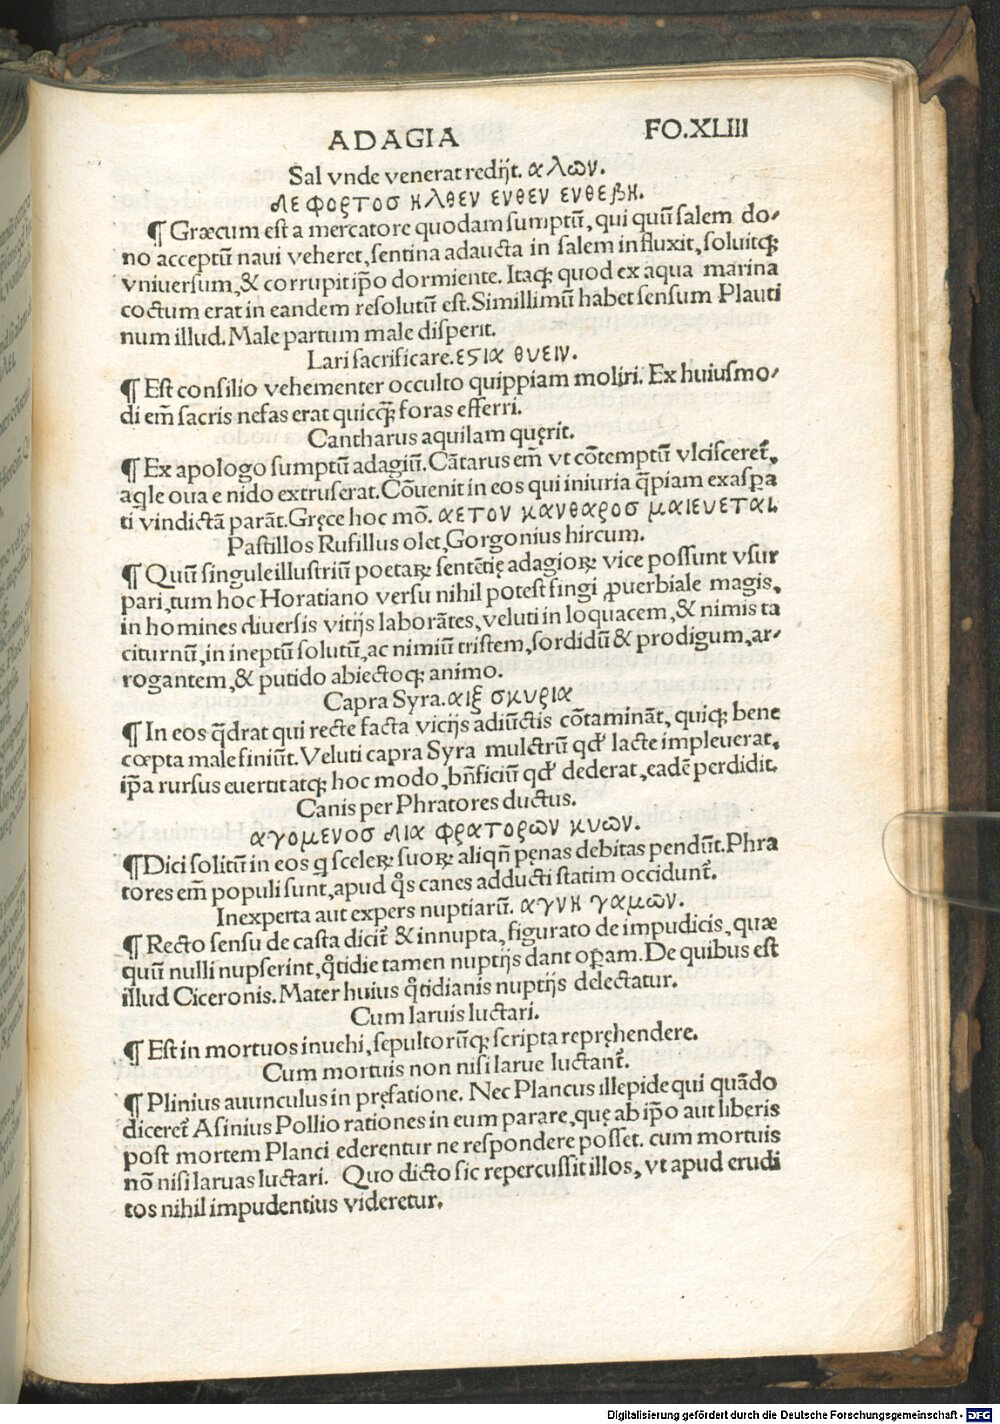 ADAGIA FO.XLIII
Sal vnde venerat redijt. αλων.
δε φορτοσ ηλθεν ενθεν ενθεβη.
¶ Græcum est a mercatore quodam sumptū, qui quū salem do-
no acceptū naui veheret, sentina adaucta in salem influxit, soluitqꝫ
vniuersum, & corrupit ip̄o dormiente. Itaqꝫ quod ex aqua marina
coctum erat in eandem resolutū est. Simillimū habet sensum Plauti
num illud. Male partum male disperit.
Lari sacrificare. εστια θυειν.
¶ Est consilio vehementer occulto quippiam moliri. Ex huiusmo-
di em̄ sacris nefas erat quicq̄ꝫ foras efferri.
Cantharus aquilam quęrit.
¶ Ex apologo sumptū adagiū. Cātarus em̄ vt cōtemptū vlcisceret᷑,
aq̄le oua e nido extruserat. Cōuenit in eos qui iniuria q̄piam exasꝑa
ti vindictā parāt. Gręce hoc mō. αετον κανθαροσ μαιευεται.
Pastillos Rufillus olet, Gorgonius hircum.
¶ Quū singule illustriū poetaꝝ sentētię adagioꝝ vice possunt vsur
pari, tum hoc Horatiano versu nihil potest fingi ꝓuerbiale magis,
in homines diuersis vitijs laborātes, veluti in loquacem, & nimis ta
citurnū, in ineptū solutū, ac nimiū tristem, sordidū & prodigum, ar-
rogantem, & putido abiectoqꝫ animo.
Capra Syra. αιξ σκυρια
¶ In eos q̄drat qui recte facta vicijs adiūctis cōtamināt, quiqꝫ bene
cœpta male finiūt. Veluti capra Syra mulctrū qd̓ lacte impleuerat,
ip̄a rursus euertit atqꝫ hoc modo, bn̄ficiū qd̓ dederat, eadē perdidit.
Canis per Phratores ductus.
αγομενοσ δια φρατορων κυων.
¶ Dici solitū in eos q sceleꝝ suoꝝ aliqn̄ pęnas debitas pendūt. Phra
tores em̄ populi sunt, apud q̊s canes adducti statim occidunt᷑.
Inexperta aut expers nuptiarū. αγνη γαμων.
¶ Recto sensu de casta dicit᷑ & innupta, figurato de impudicis, quæ
quū nulli nupserint, q̊tidie tamen nuptijs dant oꝑam. De quibus est
illud Ciceronis. Mater huius q̊tidianis nuptijs delectatur.
Cum laruis luctari.
¶ Est in mortuos inuehi, sepultorūqꝫ scripta repręhendere.
Cum mortuis non nisi larue luctant᷑.
¶ Plinius auunculus in pręfatione. Nec Plancus illepide qui quādo
diceret᷑ Asinius Pollio rationes in eum parare, quę ab ip̄o aut liberis
post mortem Planci ederentur ne respondere posset. cum mortuis
nō nisi laruas luctari. Quo dicto sic repercussit illos, vt apud erudi
tos nihil impudentius videretur.
Digitalisierung gefördert durch die Deutsche Forschungsgemeinschaft - DFG